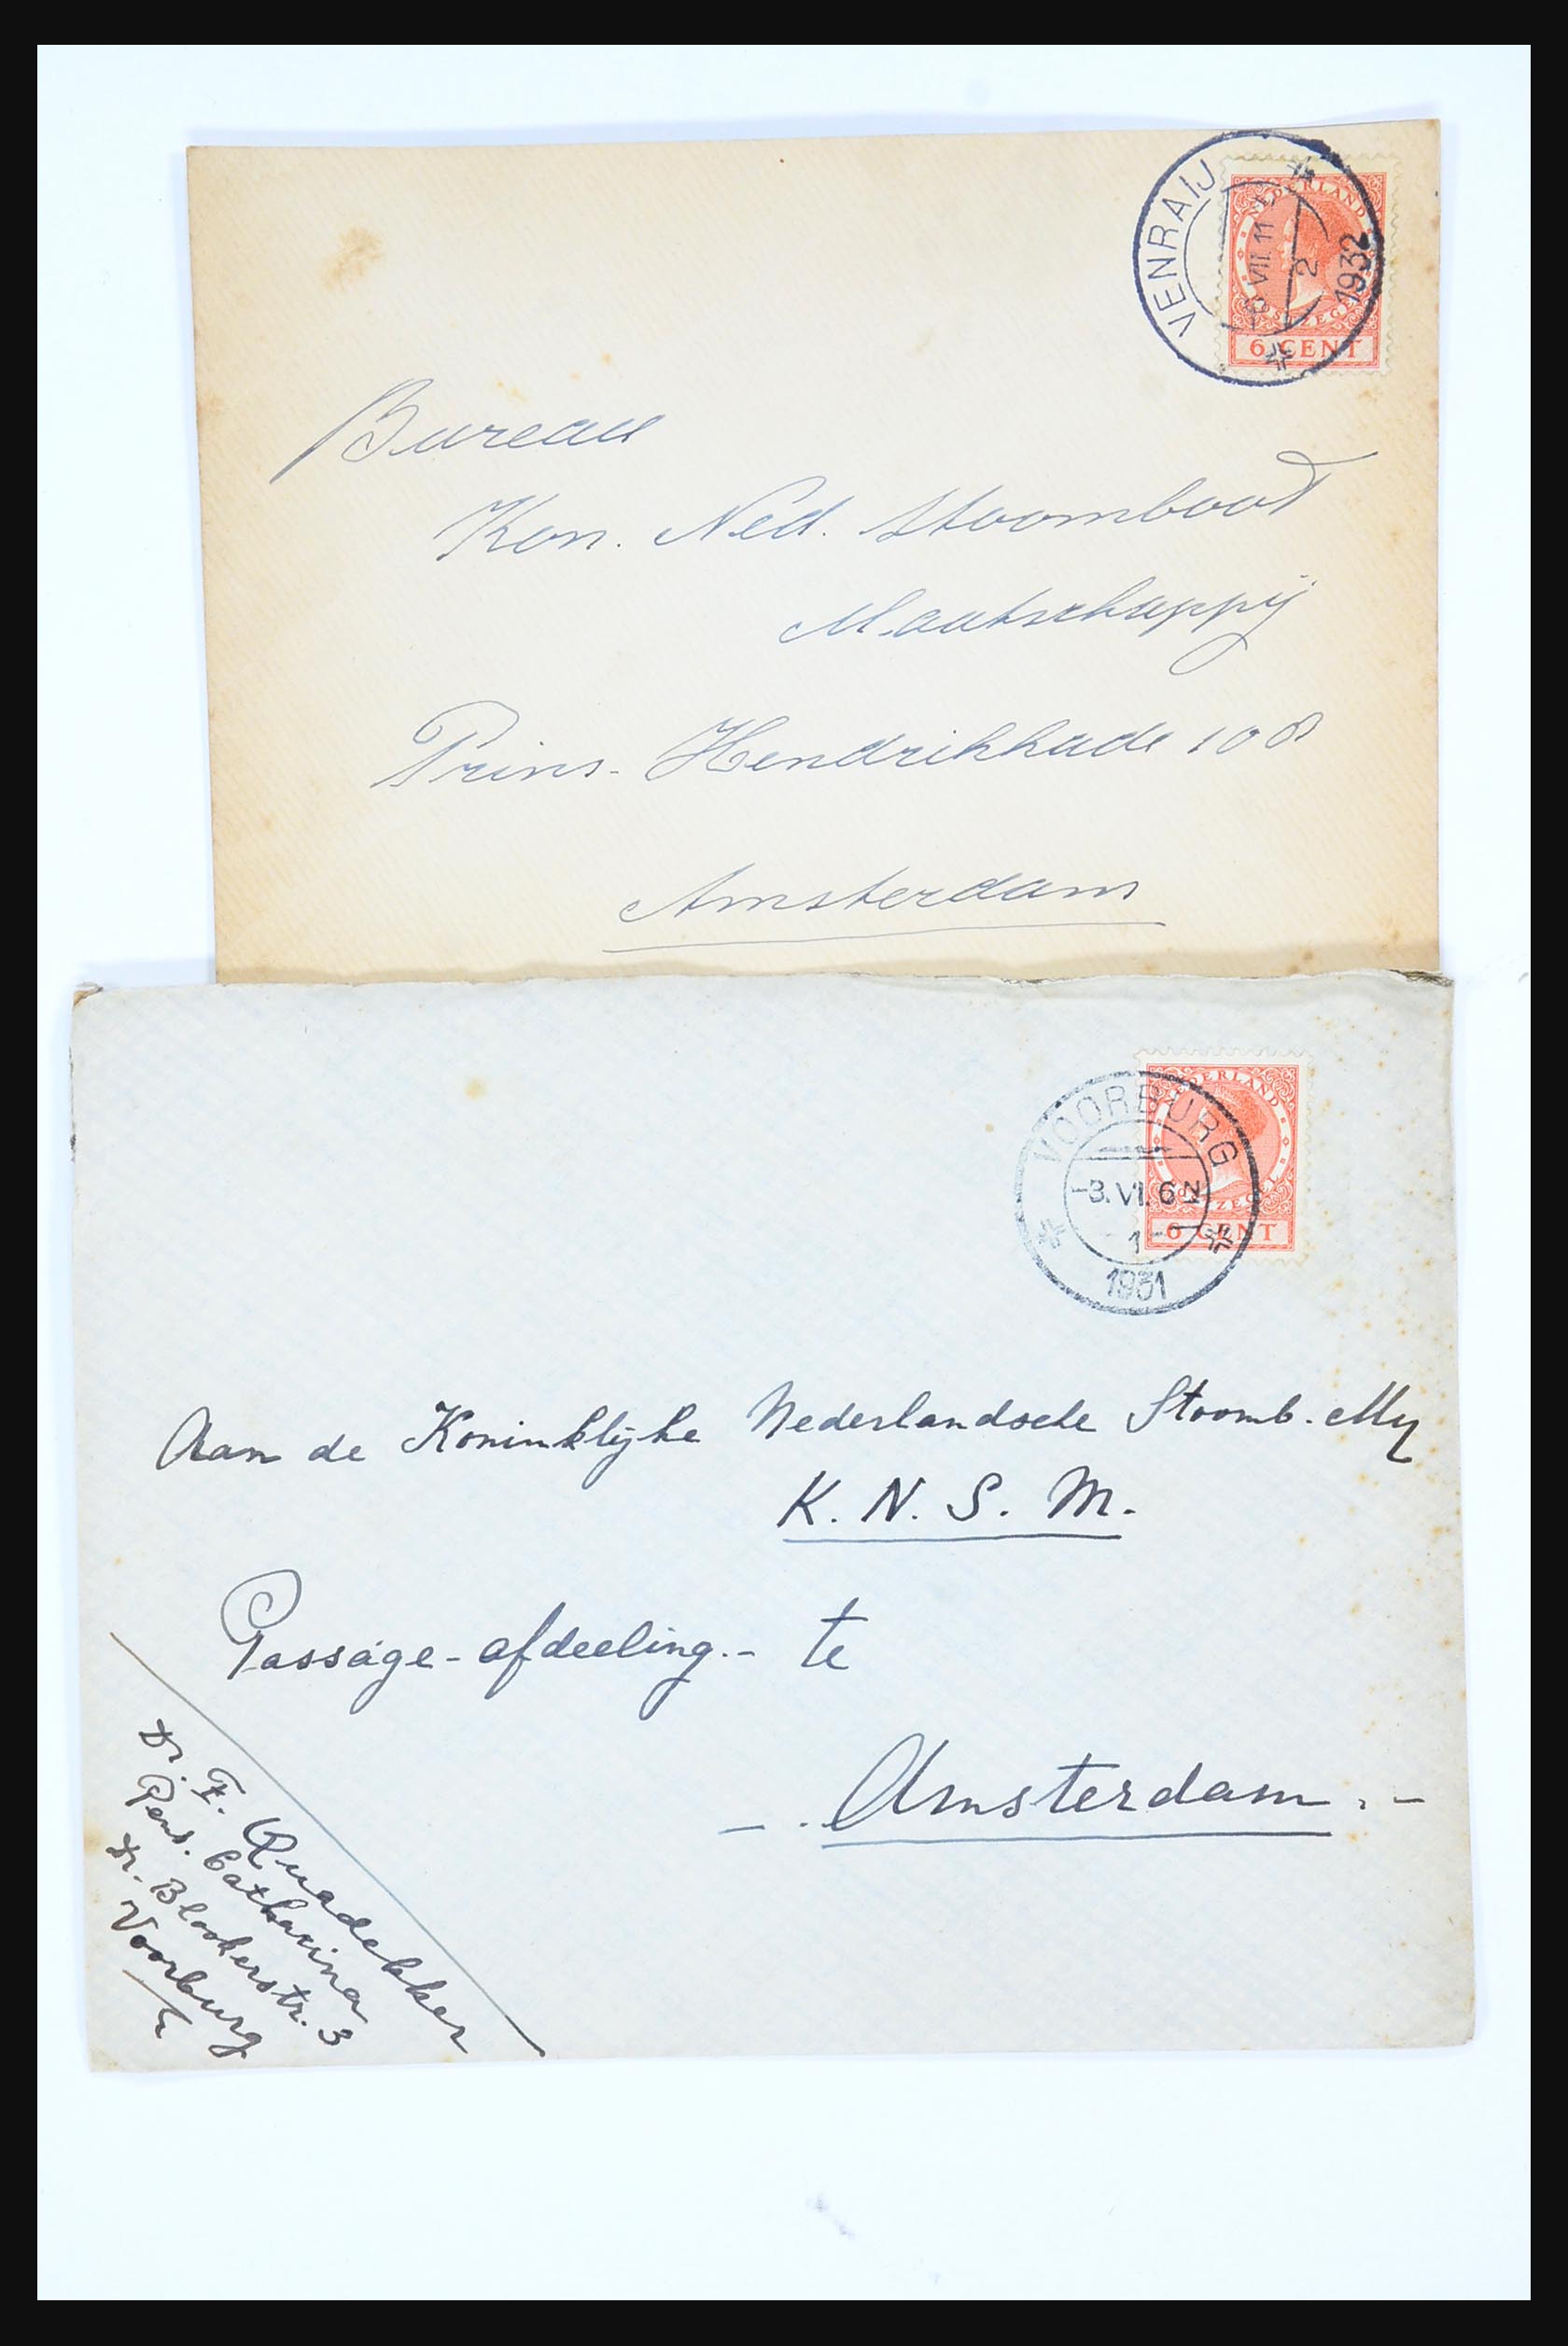 VENRAIJ
VII 11
2
1932
NEDERLAND
POSTZEGEL
6 CENT
Bureau
Kon. Ned. Stoomboot
Maatschappij
Prins. Hendrikkade 108
Amsterdam
VOORBURG
-3.VI.6N
1
1931
NEDERLAND
6 CENT
Aan de Koninklijke Nederlandsche Stoomb. My
K. N. S. M.
Passage-afdeeling.- te
-. Amsterdam.-
Dr. F. Quadekker
Pens. Catharina
Dr. Blookerstr. 3
Voorburg